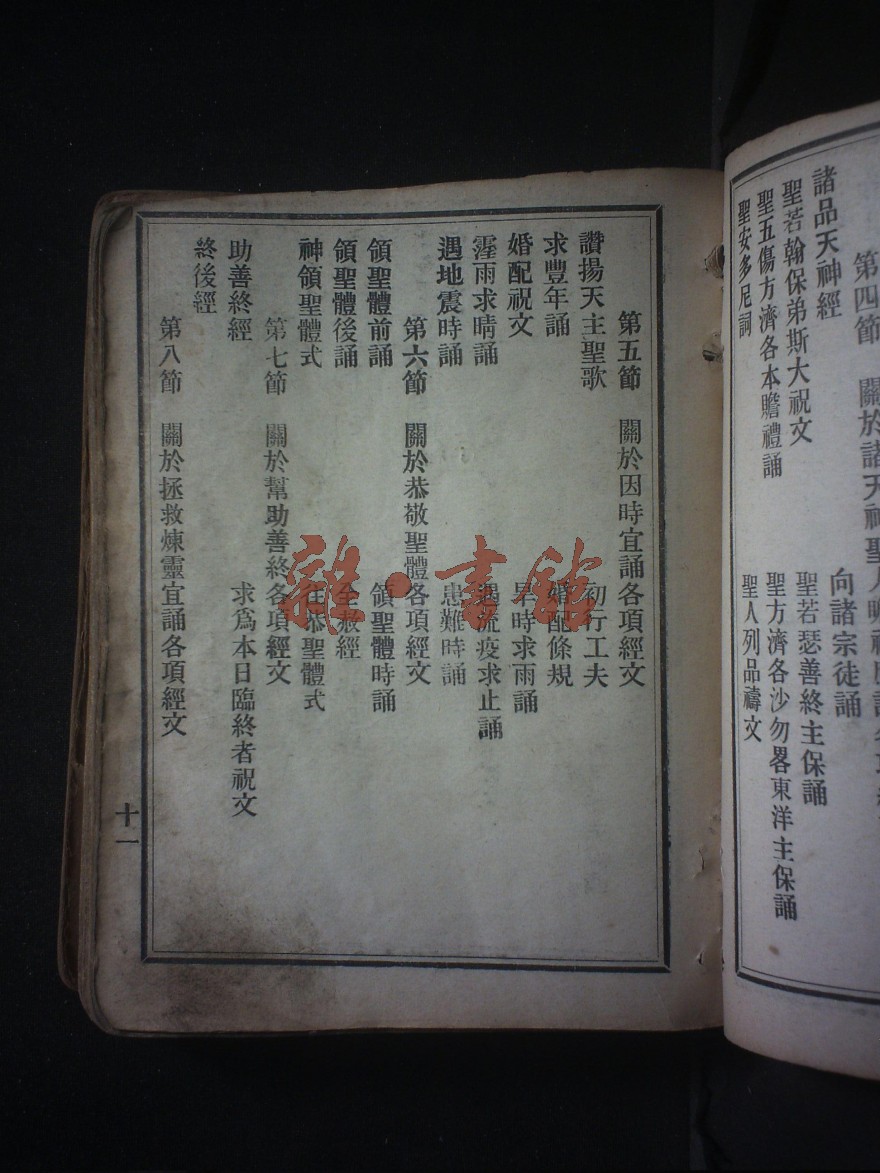 第四節　關於諸天神聖人
諸品天神經　向諸宗徒誦
聖若翰保弟斯大祝文　聖若瑟善終主保誦
聖五傷方濟各本瞻禮誦　聖方濟各沙勿畧東洋主保誦
聖安多尼詞　聖人列品禱文
第五節　關於因時宜誦各項經文
讚揚天主聖歌　初行工夫
求豐年誦　婚配條規
婚配祝文　旱時求雨誦
霪雨求晴誦　遇流疫求止誦
遇地震時誦　患難時誦
第六節　關於恭敬聖體各項經文
領聖體前誦　領聖體時誦
領聖體後誦　全赦經
神領聖體式　往恭聖體式
第七節　關於幫助善終各項經文
助善終經　求爲本日臨終者祝文
終後經
第八節　關於拯救煉靈宜誦各項經文
十一
雜·書館